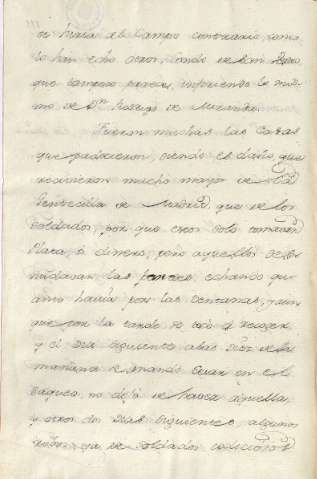 se hacia al Campo contrario, como
lo han echo otros, Conde de San
que tampoco parece, infiriendo lo mis-
mo de Dn Rodrigo de Miranda.
Fueron muchas las Casas
que padecieron, siendo el daño, que
recivieron mucho mayor de la
de Madrid, que de los
soldados, por que estos solo tomavan
Plata, ò dinero, pero aquellos
las echando que
anto havia por las Ventanas, y aun
que por la tarde se tocò à recoger
y el Dia siguiente alas Diez de la
mañana se mandò el
saqueo, no dejò de haver aquella,
y otros dos Dias siguientes algunos
robos, ya de soldados